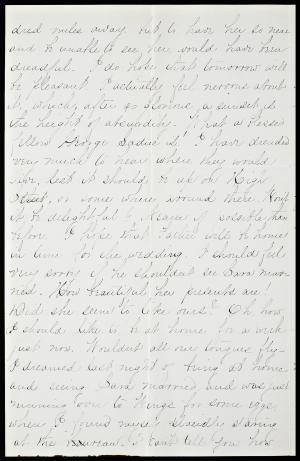 dred miles away, but to have her so near
and be unable to see her, would have been
dreadful. I do hope that tomorrow will
be pleasant. I actually feel nervous about
it, which, after so glorious a sunset, is
the height of absurdity. What a blessed
fellow George Sadue is. I have dreaded
very much to hear where they would
live, lest it should be up on High
Street, or some where around there. Won't
it be delightful & nearer if possible than
before. I hope that Father will be home
in time for the wedding. I should feel
very sorry if he shouldn't see Sara mar-
ried. How beautiful her presents are!
Did she seem to like ours? Oh, how
I should like to be at home for a week
just now. Wouldn't all our tongues fly.
I dreamed last night of being at home
and seeing Sara married, and was just
running over to Kings for some eggs,
when I found myself
at the bureau. I can't tell you how